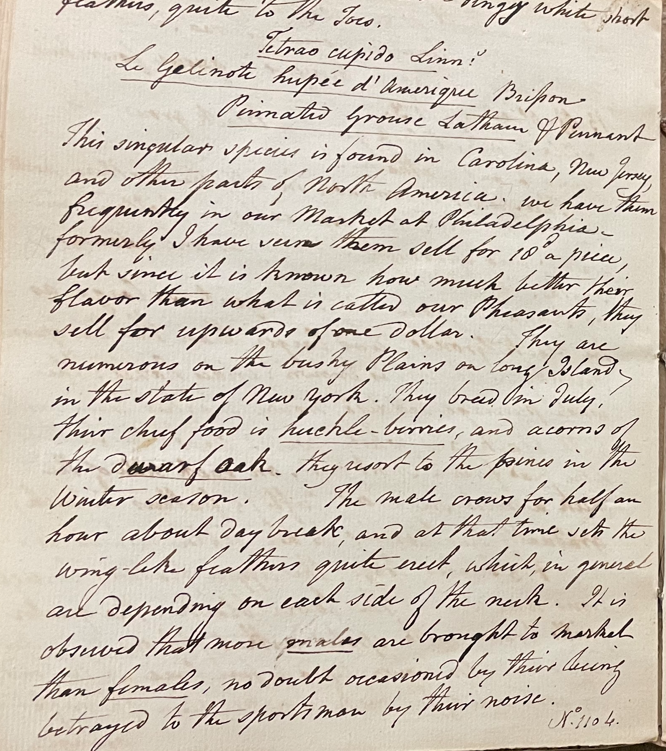 feathers, quite to the Toes. dingy white short
Tetrao cupido Linn.
Le Gelinote hupée d'Amerique Brisson
Pinnated Grouse Latham & Pennant
This singular species is found in Carolina, New Jersey,
and other parts of North America. we have them
frequently in our Market at Philadelphia.
formerly I have seen them sell for 18d a piece,
but since it is known how much better their
flavor than what is called our Pheasants, they
sell for upwards of one dollar. They are
numerous on the bushy Plains on long Island,
in the state of New York. They breed in July.
their chief food is huckle-berries, and acorns of
the dwarf oak. they resort to the pines in the
Winter season. The male crows for half an
hour about daybreak, and at that time sets the
wing-like feathers quite erect, which, in general
are depending on each side of the neck. It is
observed that more males are brought to market
than females, no doubt occasioned by their being
betrayed to the sportsman by their noise.
No. 1104.